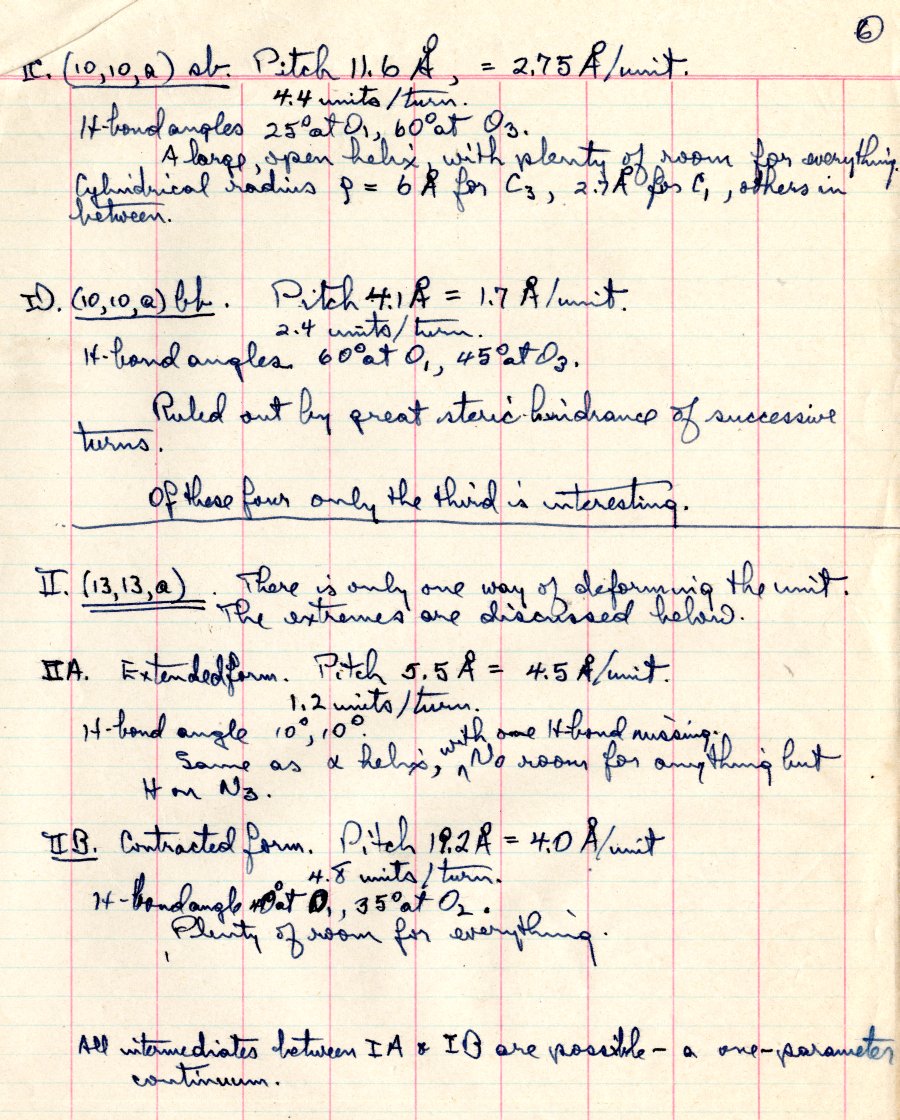 6
IC. (10,10,a) ab. Pitch 11.6 Å, = 2.75 Å/unit.
4.4 units/turn.
H-bond angles 25° at O1, 60° at O3.
A large, open helix, with plenty of room for everything.
Cylindrical radius ρ = 6 Å for C3, 2.7Å for C1, others in
between.
ID. (10,10,a) bb. Pitch 4.1 Å = 1.7 Å/unit.
2.4 units/turn.
H-bond angles 60° at O1, 45° at O3.
Ruled out by great steric hindrance of successive
turns.
Of these four only the third is interesting.
II. (13,13,a). There is only one way of deforming the unit.
The extremes are discussed below.
IIA. Extended form. Pitch 5.5 Å = 4.5 Å/unit.
1.2 units/turn.
H-bond angle 10°, 10°.
Same as α helix, with one H bond missing. No room for anything but
H on N3.
IIB. Contracted form. Pitch 19.2 Å = 4.0 Å/unit
4.8 units/turn.
H-bond angle 40° at O1, 35° at O2.
Plenty of room for everything.
All intermediates between IA & IB are possible – a one-parameter
continuum.